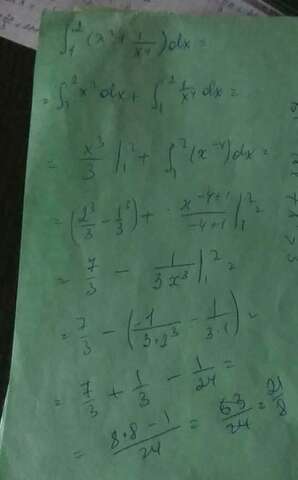 ∫₁² (x² + 1/x⁴) dx =
= ∫₁² x² dx + ∫₁² 1/x⁴ dx =
= x³/3 |₁² + ∫₁² (x⁻⁴) dx =
= (2³/3 - 1³/3) + x⁻⁴⁺¹/-4+1 |₁² =
= 7/3 - 1/3x³ |₁² =
= 7/3 - (1/3·2³ - 1/3·1) =
= 7/3 + 1/3 - 1/24 =
= 8·8-1/24 = 63/24 = 21/8